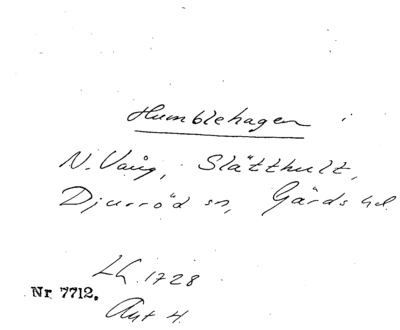 Humblehagen i
N. Vång, Slätthult,
Djurröd sn, Gärds hd.
LG. 1728
Nr 7712.
Akt 4.